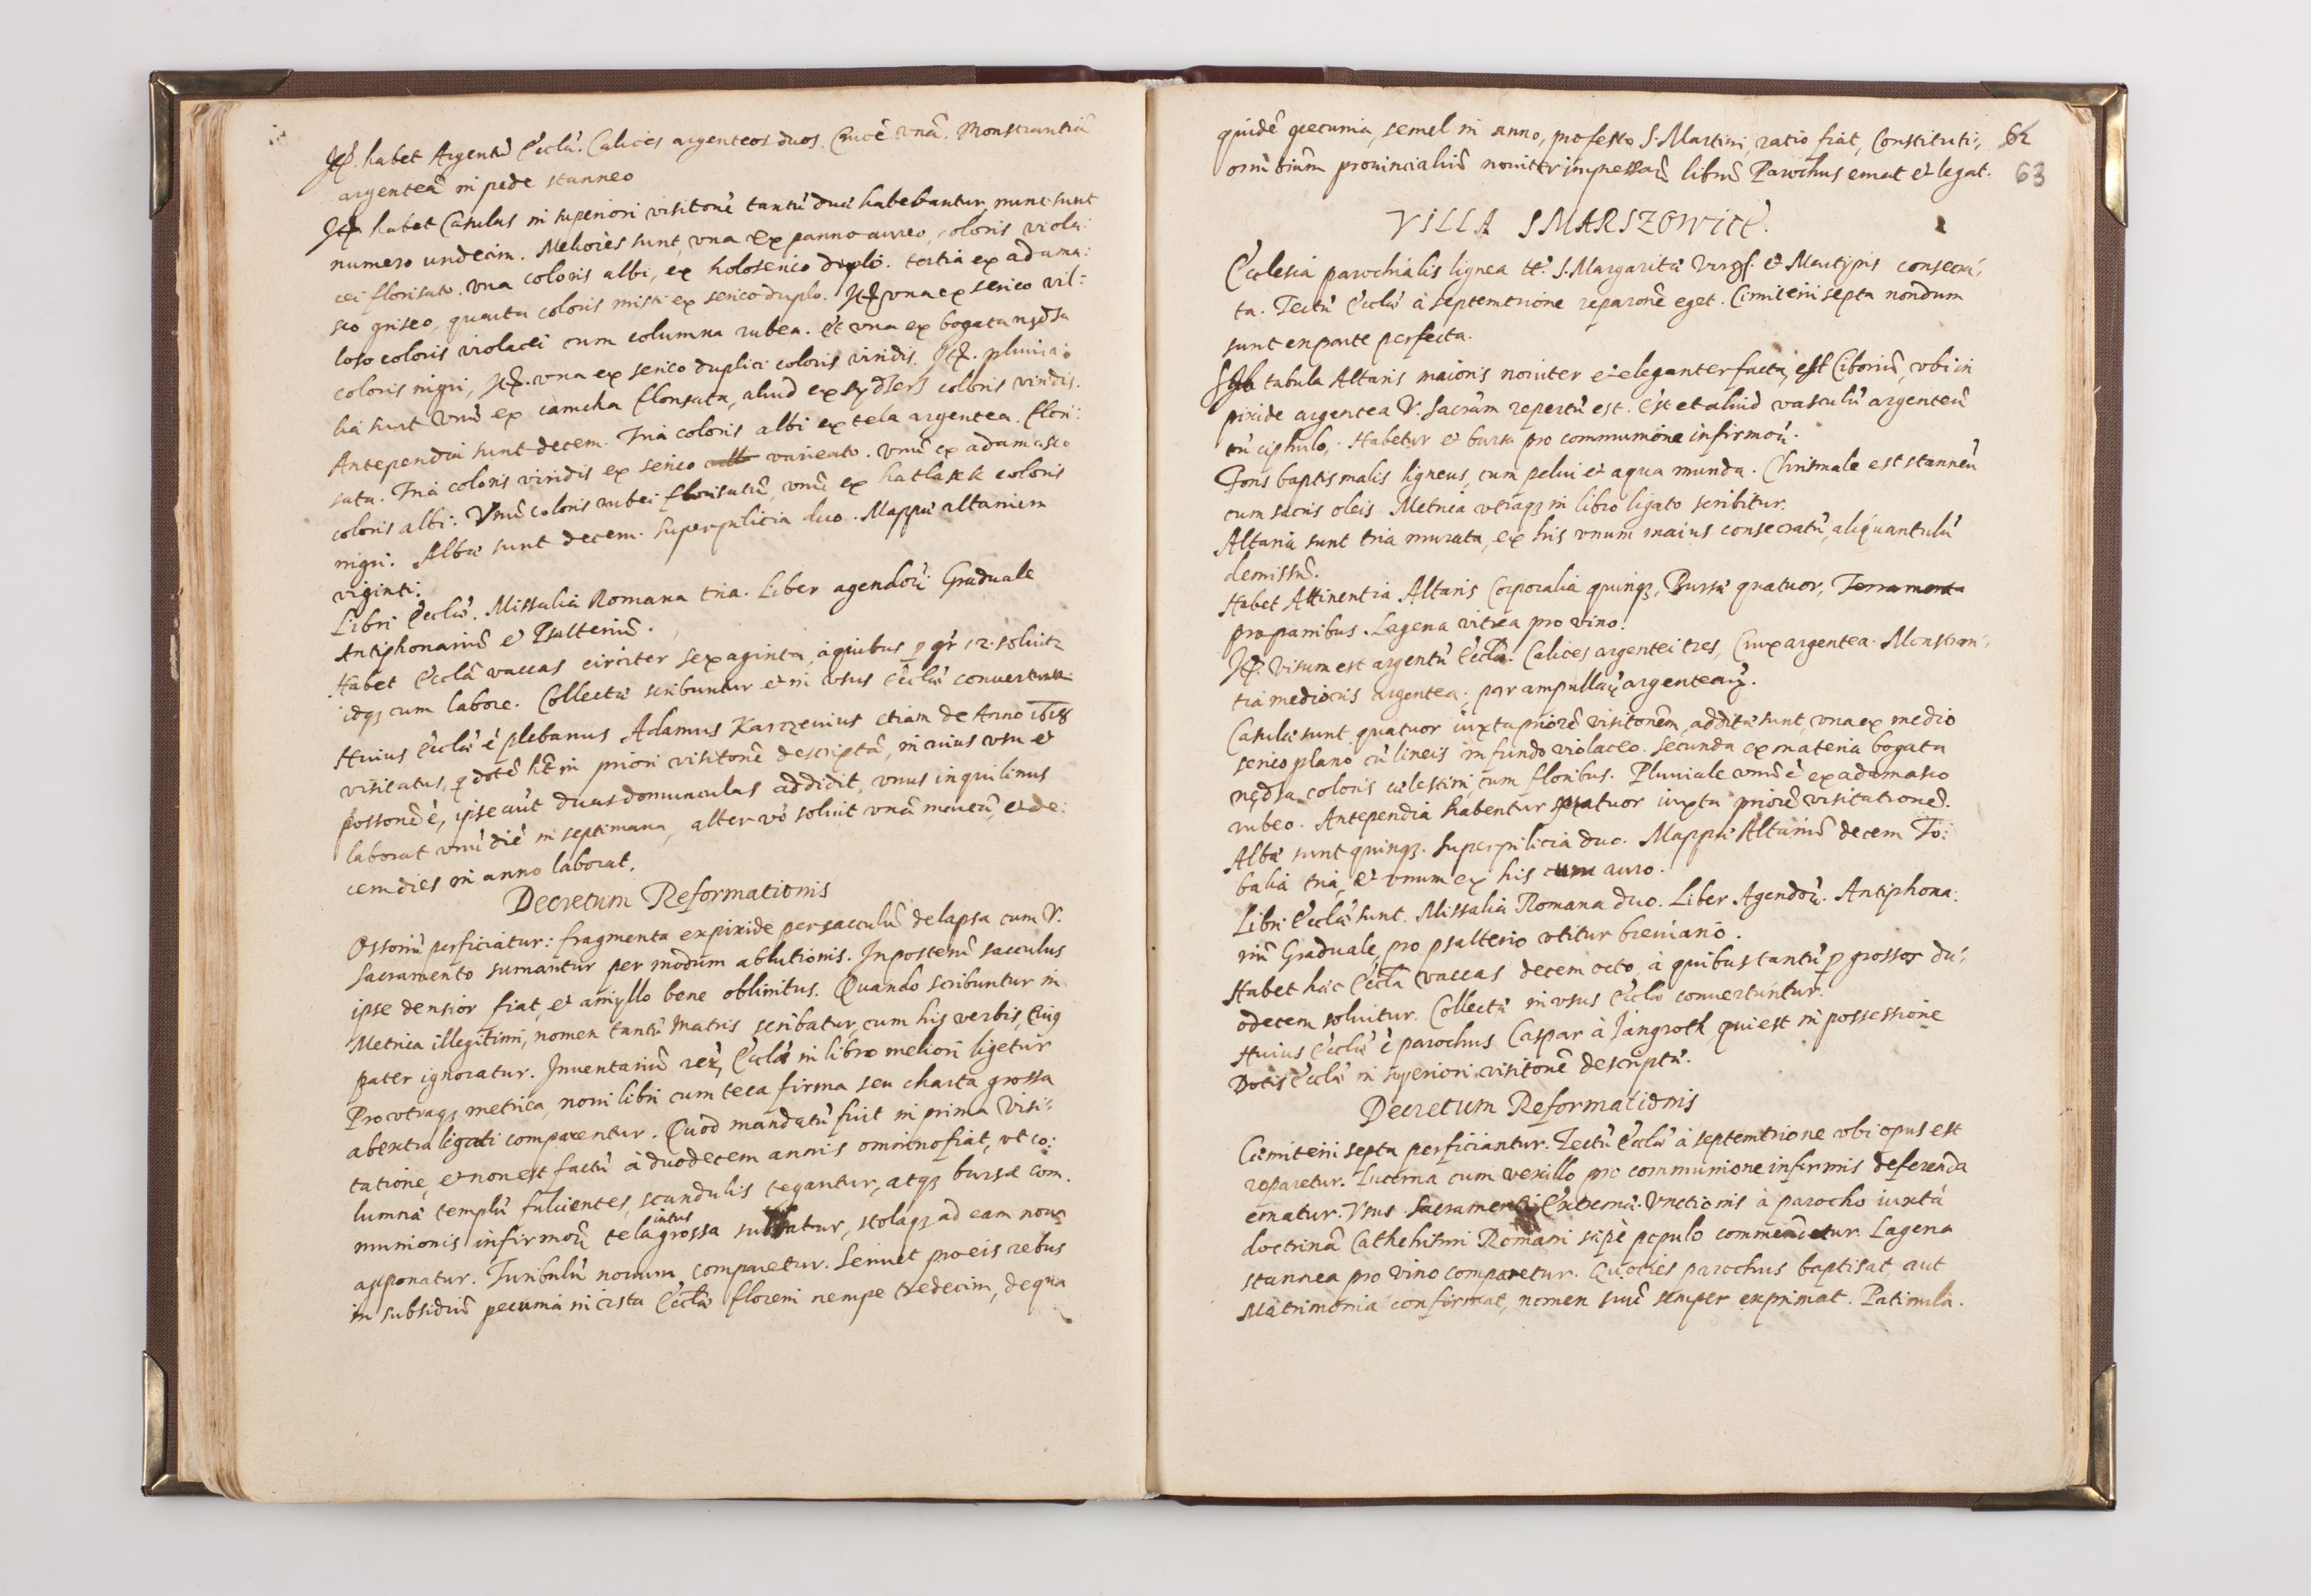 Itē. habet Argentū Eccliæ. Calices argenteos duos. Crucē vnā. Monstrantiā
argenteā in pede stanneo
Itē habet Casulas in superiori visitonē tantū duæ habebantur, nunc sunt
numero undecim. Meliores sunt, vna ex panno aureo, coloris viola:
cei florisato. vna coloris albi, ex holoserico duplō. tertia ex adama:
sco griseo, quarta coloris misti ex serico duplo. Itē vna ex serico vil:
loso coloris violacei cum columna rubea. Et vna ex bogata nędza
coloris nigri, Itē. vna ex serico duplici coloris viridis. Itē. pluuia:
lia sunt vnū ex camcha florisata, aliud ex coloris viridis.
Antependia sunt decem. Tria coloris albi ex tela argentea flori:
sata. Tria coloris viridis ex serico varieato. vnū ex adamasco
coloris albi. Vnū coloris rubei florisatū, vnū ex hatlasek coloris
nigri. Albæ sunt decem. Superpilicia duo. Mappæ altarium
viginti.
Libri Eccliæ. Missalia Romana tria. Liber agendorū. Graduale
Antiphonariū et Psalteriū.
Habet Ecclā vaccas circiter sexaginta, à quibus p gr 12. soluitr
idqȝ cum labore. Collectæ scribuntur et in vsus Eccliæ conuertuntr
Huius Eccliæ ē plebanus Adamus Karczeuius etiam de Anno 1618
visitatus, q dotē hēt in priori visitonē descriptā, in cuius vsu et
possonē ē, ipse aūt duas domunculas addidit, vnus inquilinus
laborat vnū diē in septimana, alter vō soluit vnā marcā, et de:
cem dies in anno laborat.
Decretum Reformationis
Ossoriū perficiatur: fragmenta ex pixide per sacculū delapsa cum V.
Sacramento sumantur per modum ablutionis. In posterū sacculus
ipse densior fiat, et amyllo bene oblinitus. Quando scribuntur in
Metrica illegitimi, nomen tantū Matris scribatur, cum his verbis, Eius
pater ignoratur. Inuentariū rerū Eccliæ in libro meliori ligetur
Pro vtraqȝ metrica, noui libri cum teca firma seu charta grossa
ab extra ligati comparentur. Quod mandatū fuit in prima Visi:
tatione, et non est factū à duodecem annis omnino fiat, vt co:
lumnæ templū fulcientes, scandulis tegantur, atqȝ bursæ com.
munionis infirmorū tela grossa intus subatur, stolaqȝ ad eam noua
apponatur. Turibulū nouum comparetur. Seruet pro eis rebus
in subsidiū pecuniæ in cista Eccliæ floreni nempe tredecim, de qua
quidē pecunia, semel in anno, pro festo S. Martini, ratio fiat, Constituti: 62
onum prouincialiū nouiter impressarū librū Parochus emat et legat. 63
VILLA SMARSZOWICE.
Ecclesia parochialis lignea tt. S. Margaritæ Virgs. et Martyris consecra:
ta. Tectū Eccliæ à septemtrione reparonē eget. Cimiterii septa nondum
sunt ex parte perfecta.
Sub tabula Altaris maioris nouiter et eleganter facta, est Ciboriū, vbi in
pixide argentea V. Sacrām repertū est. Est et aliud vasculū argenteū
cū ciphulo. Habetur et bursa pro communione infirmorū.
Fons baptismalis ligneus, cum pelui et aqua munda. Chrismale est stanneū
cum sacris oleis. Metrica vtraqȝ in libro ligato scribitur.
Altaria sunt tria murata, ex his vnum maius consecratū, aliquantulū
demissū.
Habet Attinentia Altaris Corporalia quinqȝ, Bursæ quatuor, Ferramenta
pro panibus. Lagena vitrea pro vino.
Itē. visum est argentū Eccliæ. Calices argentei tres, Crux argentea. Monstran:
tia mediocris argentea, par ampullarū argentearū.
Casulæ sunt quatuor iuxta priorē visitonēm, additæ sunt, vna ex medio
serico plano cū lineis in fundo violaceo. Secunda ex materia bogata
nędza coloris cælestini, cum floribus. Pluuiale vnū ē ex adamasco
rubeo. Antependia habentur quatuor iuxta priorē visitationē.
Albæ sunt quinqȝ. Superpilicia duo. Mappæ Altariū decem To:
balia tria, et vnum ex his cum auro.
Libri Eccliæ sunt. Missalia Romana duo. Liber Agendorū. Antiphona:
riū Graduale, pro psalterio vtitur breuiario.
Habet hæc Ecclā vaccas decem octo, à quibus tantū p grossos du:
odecem soluitur. Collectæ in vsus Eccliæ conuertuntur.
Huius Eccliæ ē parochus Caspar à Jangroth qui est in possessione
Dotis Eccliæ in superiori visitonē descriptæ.
Decretum Reformationis
Cæmiterii septa perficiantur. Tectū Eccliæ à septemtrione vbi opus est
reparetur. Lucerna cum vexillo pro communione infirmis deferenda
ematur. Vsus Sacramenti Extremæ Vnctionis à parocho iuxta
doctrinā Cathehismi Romani sæpè populo commendetur. Lagena
stannea pro vino comparetur. Quoties parochus baptisat, aut
Matrimonia confirmat, nomen suū semper exprimat. Patinula.